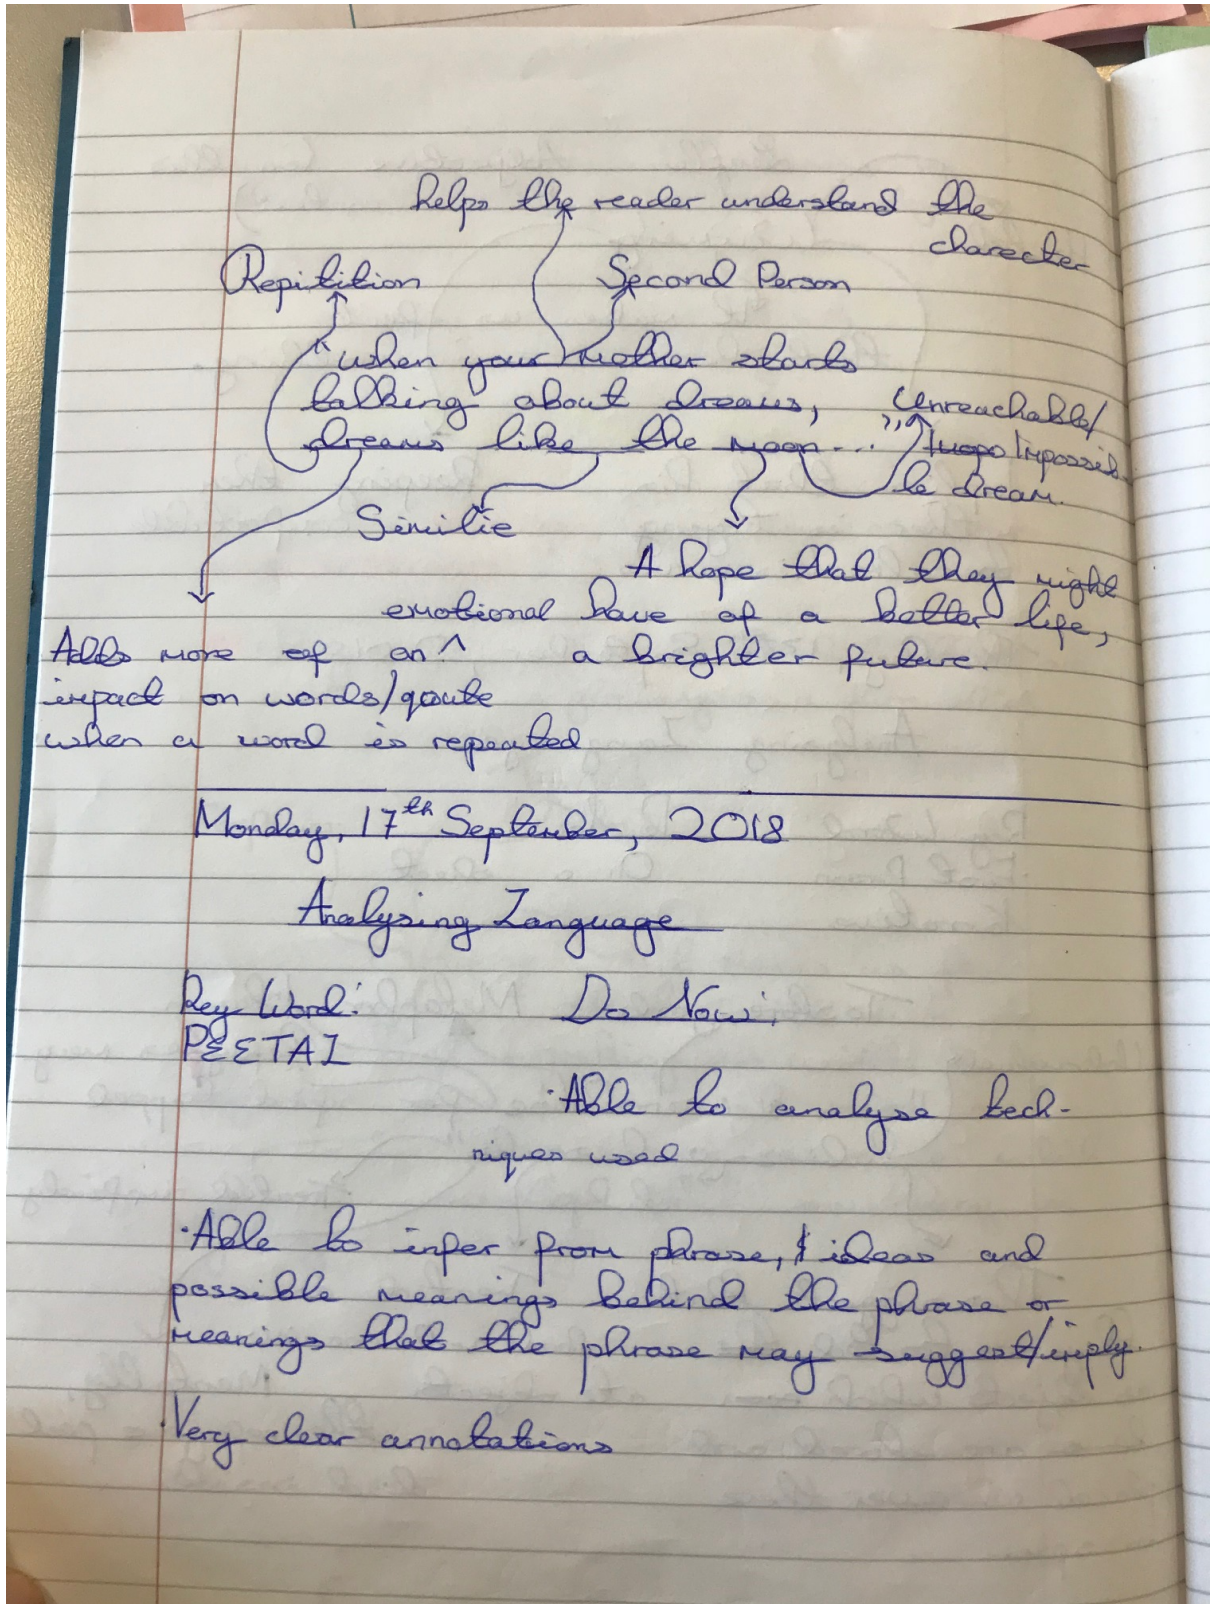 helps the reader understand the
charecter
Repitition
Second Person
"when your mother starts
talking about dreams,
dreams like the moon..."
Unreachable/
Impossib-
le dream.
Similie
A hope that they might
have of a better life,
a brighter future.
emotional
Adds more of an ^
impact on words/qoute
when a word is repeated
Monday, 17th September, 2018
Analysing Language
Key Word:
PEETAI
Do Now:
·Able to analyse tech-
niques used
·Able to infer from phrase, ideas and
possible meanings behind the phrase or
meanings that the phrase may suggest/imply.
·Very clear annotations